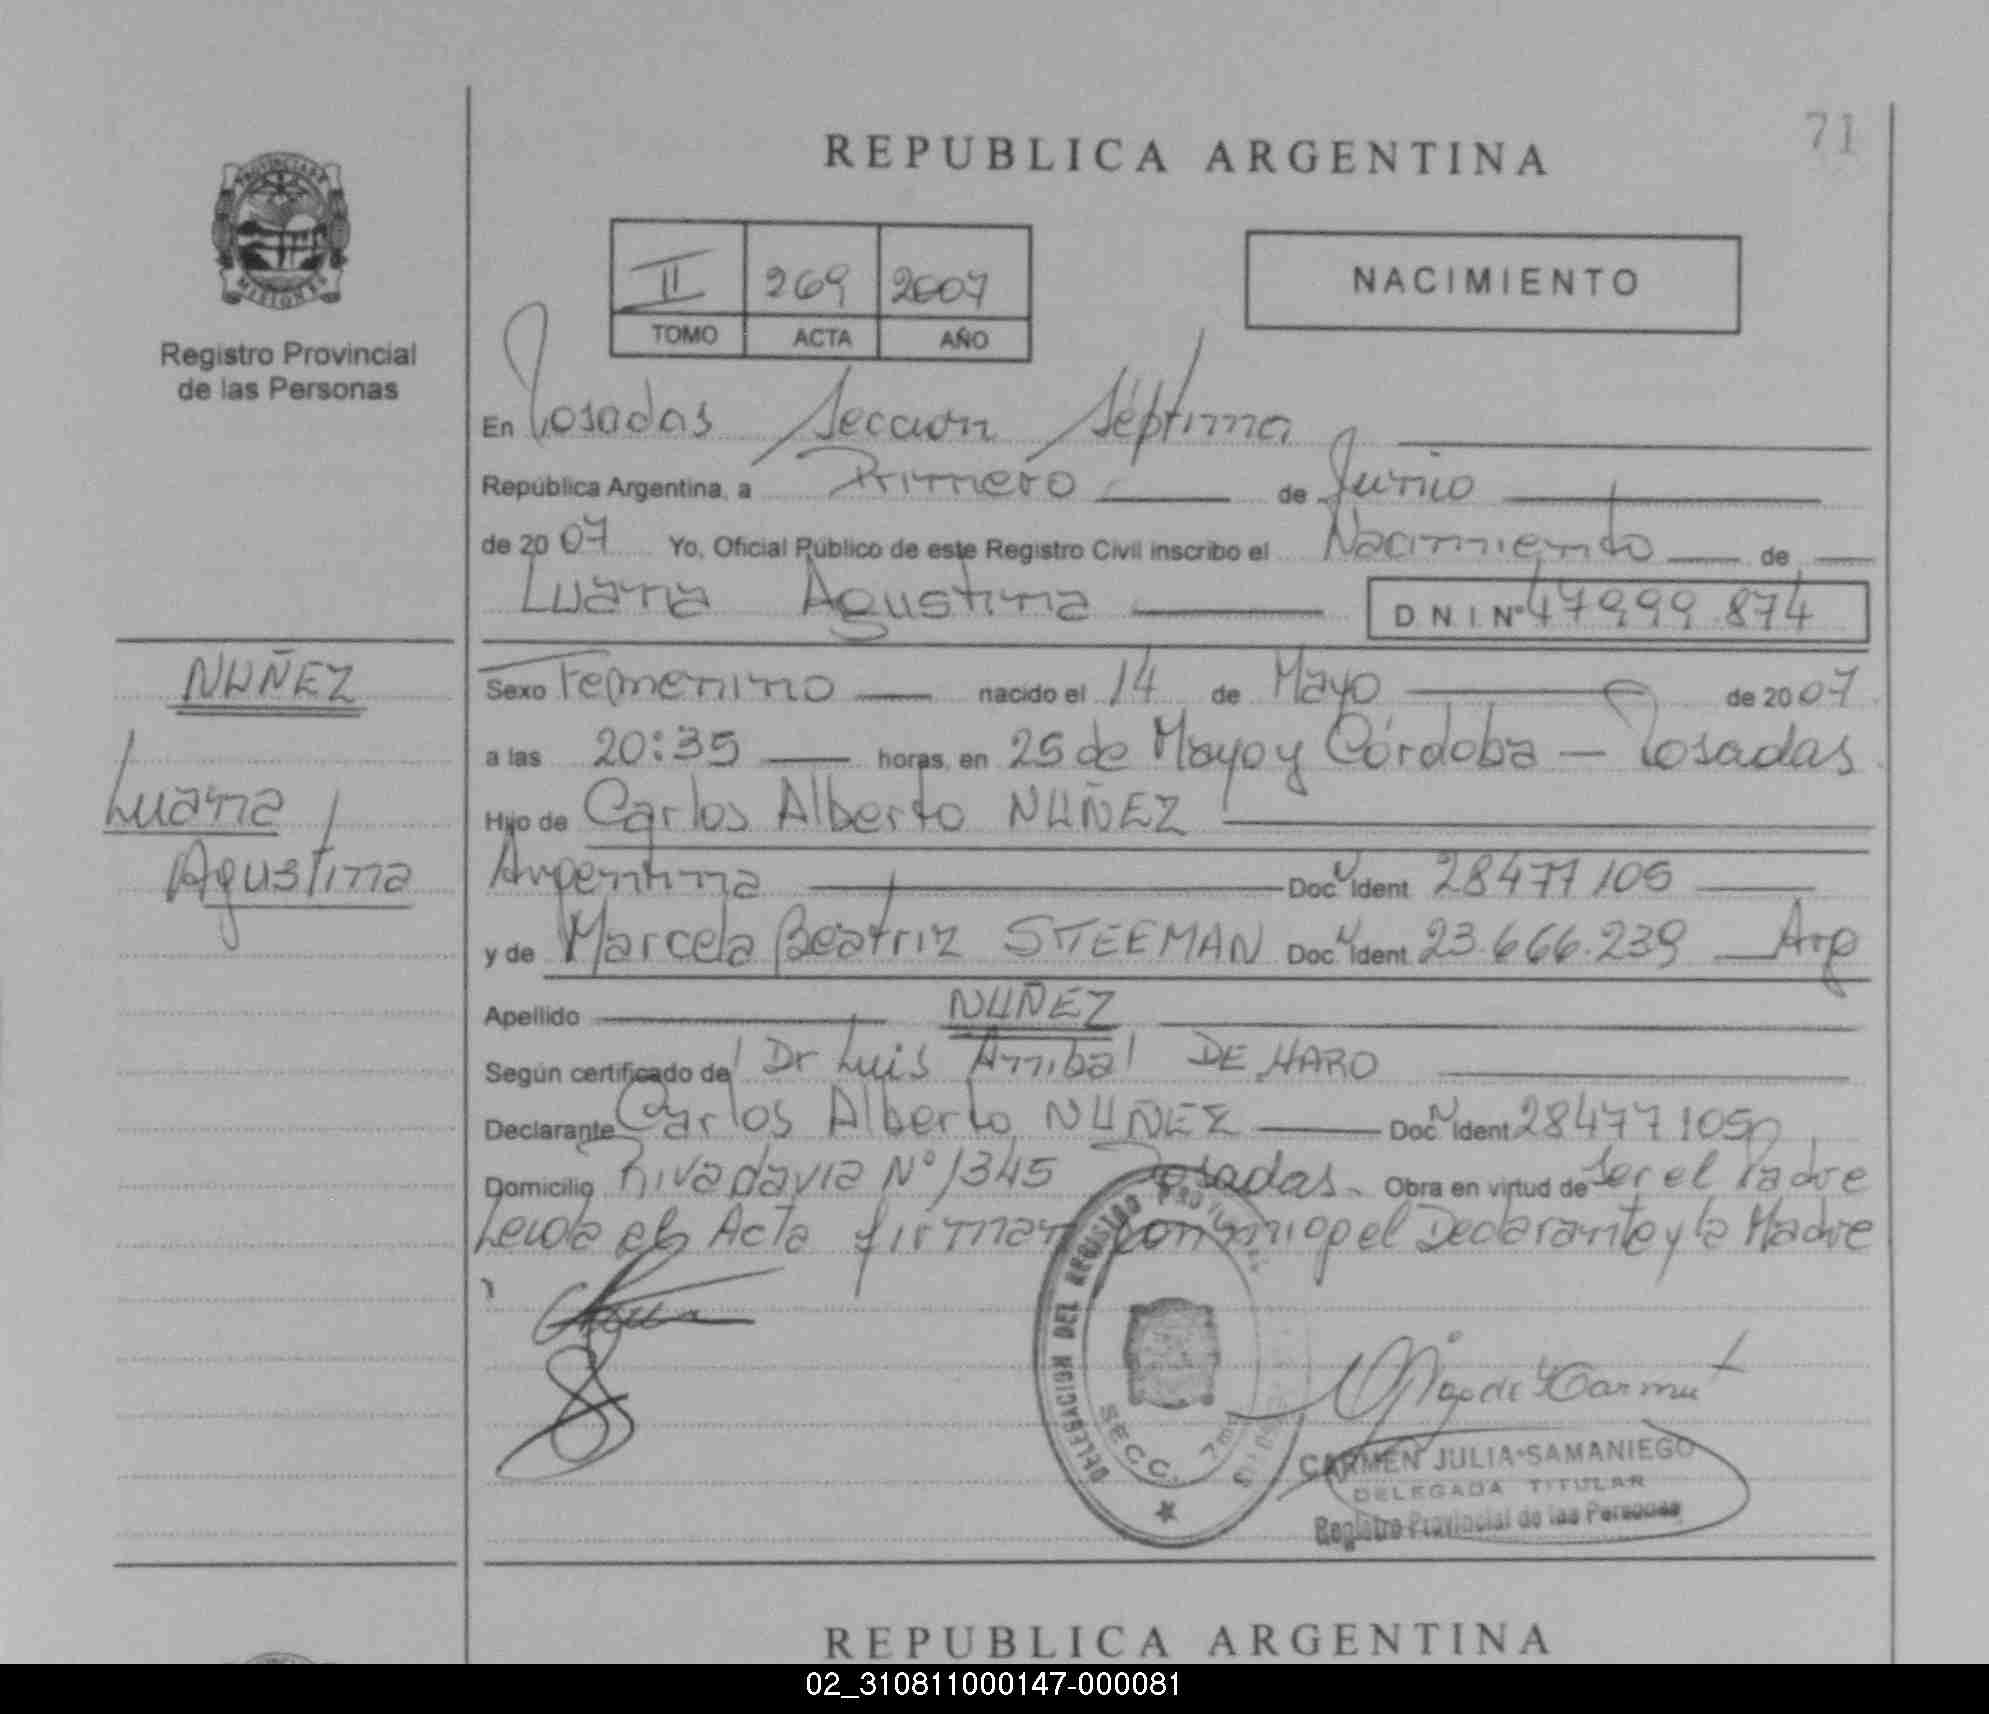 71
REPUBLICA ARGENTINA
PROVINCIA DE MISIONES
Registro Provincial
de las Personas
II 269 2007
TOMO ACTA AÑO
NACIMIENTO
En Posadas Sección Séptima
República Argentina, a Primero de Junio
de 2007 Yo, Oficial Público de este Registro Civil inscribo el Nacimiento de
Luana Agustina D N I Nº 47999.874
NUÑEZ
Luana
Agustina
Sexo Femenino nacido el 14 de Mayo de 2007
a las 20:35 horas, en 25 de Mayo y Córdoba — Posadas
Hijo de Carlos Alberto NUÑEZ
Argentina Doc. Ident 28477105
y de Marcela Beatriz STEEMAN Doc. Ident 23.666.239 Arg
Apellido NUÑEZ
Según certificado de Dr Luis Anibal DE HARO
Declarante Carlos Alberto NUÑEZ Doc. Ident 28477105
Domicilio Rivadavia Nº 1345 Posadas. Obra en virtud de ser el Padre
Leida el Acta firman conmigo el Declarante y la Madre
DELEGACION DEL REGISTRO
SECC. 7ma
CARMEN JULIA SAMANIEGO
DELEGADA TITULAR
Registro Provincial de las Personas
REPUBLICA ARGENTINA
02_310811000147-000081